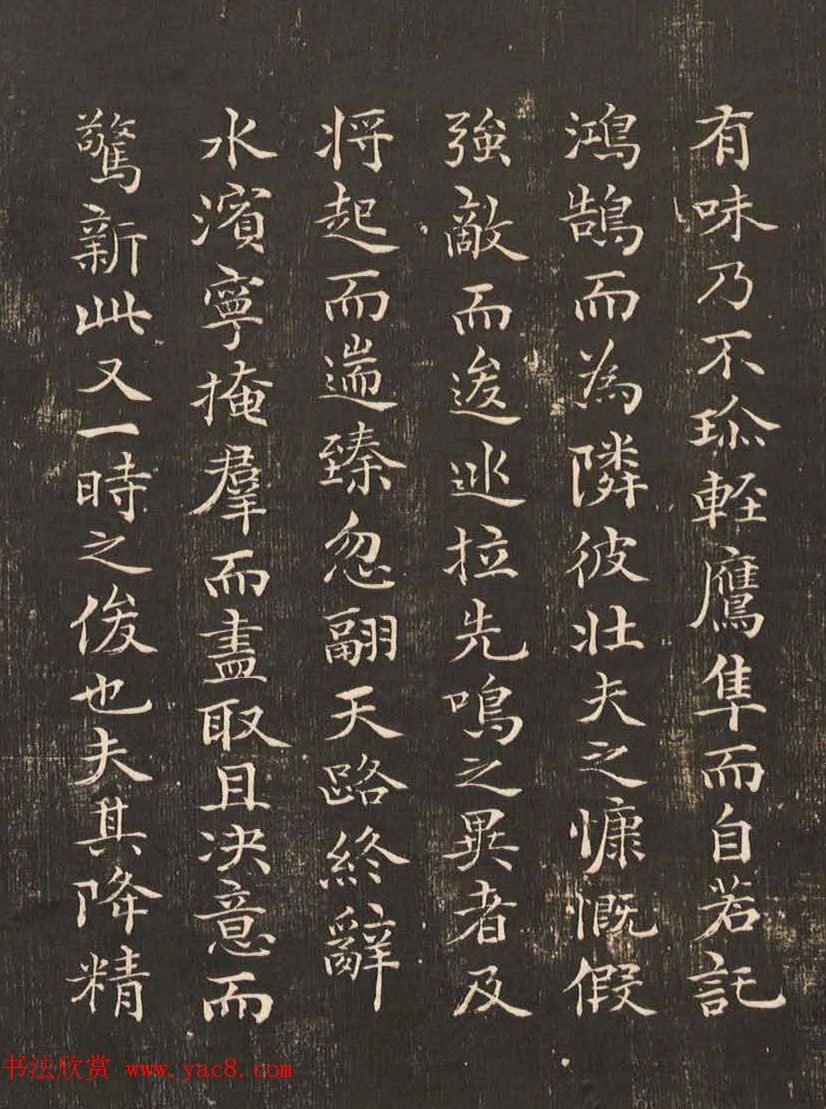 有味乃不珎輕鷹隼而自若託
鴻鵠而為隣彼壯夫之慷慨假
強敵而逡巡拉先鳴之異者及
将起而遄臻忽翮天路終辭
水濱寧掩羣而盡取且决意而
驚新此又一時之俊也夫其降精
书法欣赏 www.yac8.com